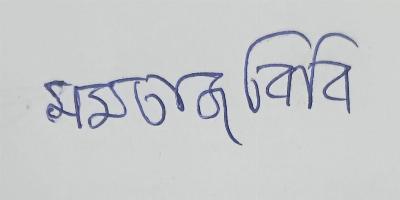 মমতাজ বিবি